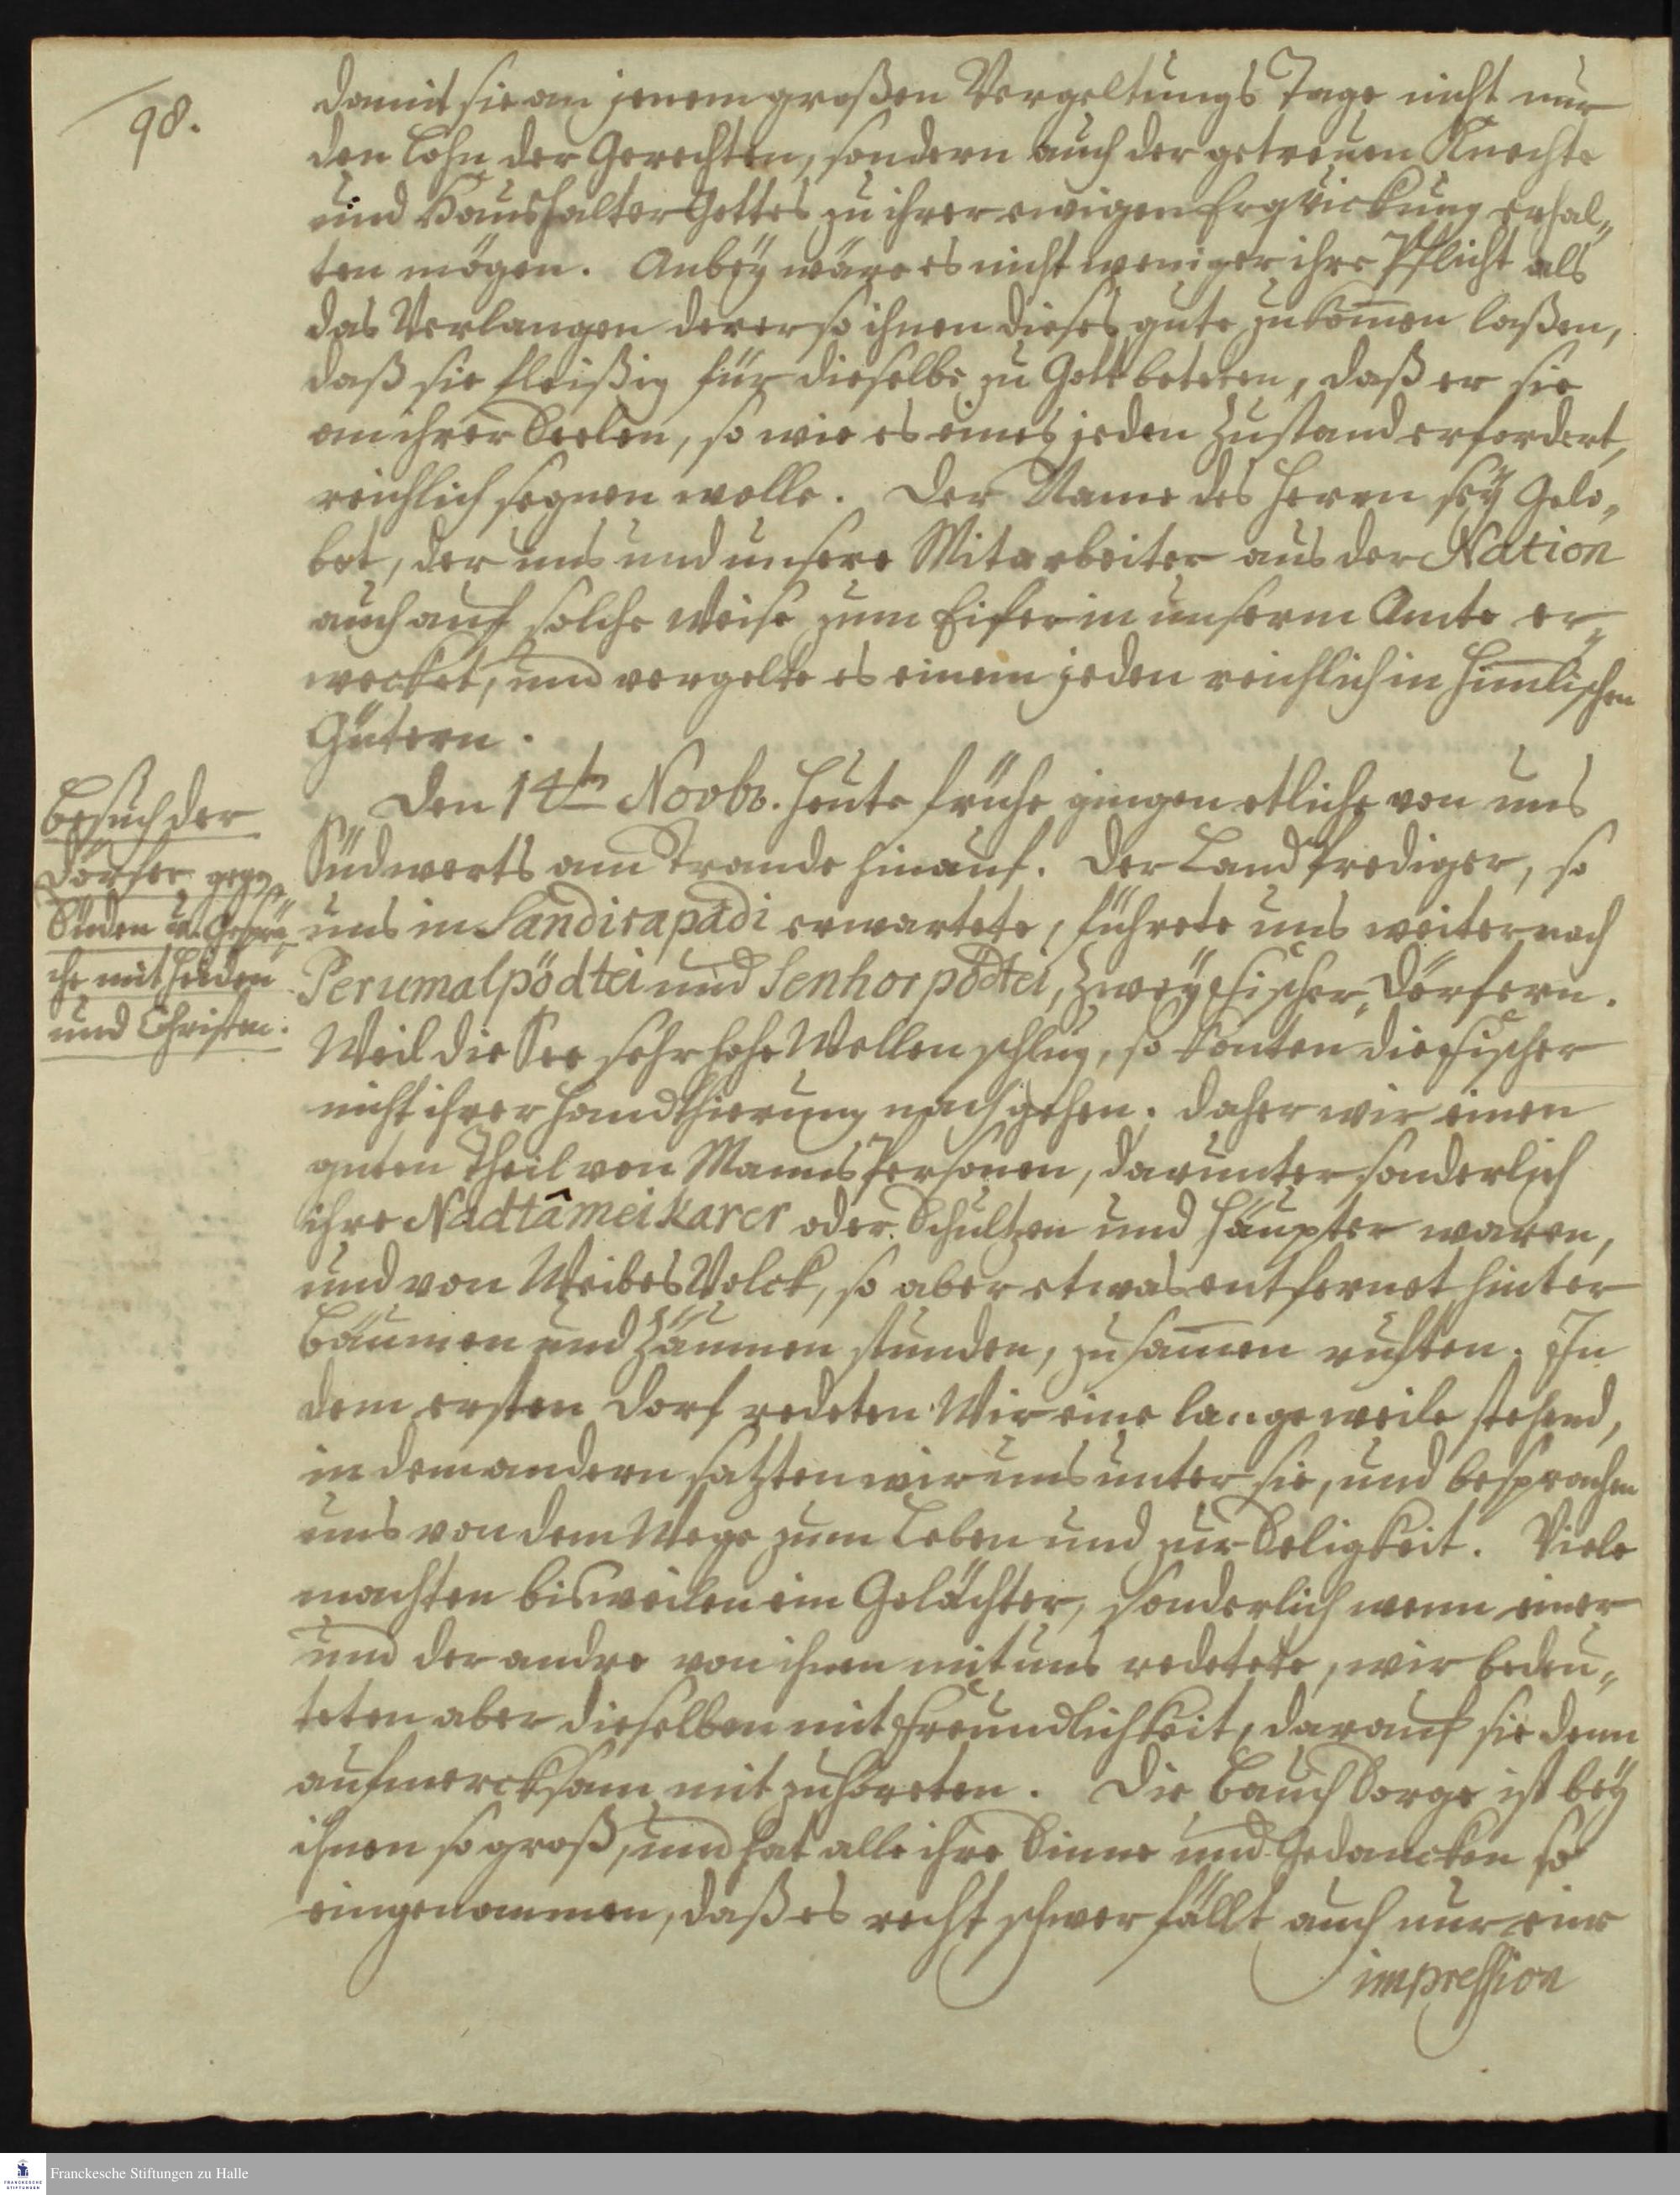 98.
damit sie an jenem großen Vergeltungs Tage nicht nur
den Lohn der Gerechten, sondern auch der getreuen Knechte
und Haushalter Gottes zu ihrer ewigen Erqvickung erhal„
ten mögen. Anbey wäre es nicht weniger ihre Pflicht als
das Verlangen derer so ihnen dieses gute zukom̄en laßen,
daß sie fleißig für dieselbe zu Gott beteten, daß er sie
an ihrer Seelen, so wie es eines jeden Zustand erfordert,
reichlich segnen wolle. Der Name des Herrn sey Gelo„
bet, der uns und unsere Mitarbeiter aus der Nation
auch auf solche Weise zum Eifer in unserm Amte er„
wecket, und vergelte es einem jeden reichlich in Him̄lischen
Gütern.
Besuch der
Dörfer gegen
Süden u. Gesprä„
che mit Heiden
und Christen.
Den 14ten Novbr. Heute frühe gingen etliche von uns
Südwerts am Strande hinauf. Der Landprediger, so
uns in Sandirapádi erwartete, führete uns weiter nach
Perumalpödtei und Senhorpödtei, zwey Fischer„Dörfern.
Weil die See sehr hohe Wellen schlug, so konten die Fischer
nicht ihrer Handthierung nachgehen. Daher wir einen
guten Theil von Manns Personen, darunter sonderlich
ihre Nádtâmeikarer oder Schultzen und Häupter waren,
und von Weibes Volck, so aber etwas entfernet hinter
Bäumen und Zäunen stunden, zusam̄en rufften. In
dem ersten Dorf redeten Wir eine lange weile stehend,
in dem andern satzten wir uns unter sie, und besprachen
uns von dem Wege zum Leben und zur Seligkeit. Viele
machten bisweilen ein Gelächter, sonderlich wenn einer
und der andre von ihnen mit uns redetete, wir bedeu„
teten aber dieselben mit Freundlichkeit, darauf sie denn
aufmercksam mit zuhöreten. Die Bauch Sorge ist bey
ihnen so groß, und hat alle ihre Sinne und Gedancken so
eingenommen, daß es recht schwer fällt auch nur eine
impression
Franckesche Stiftungen zu Halle
FRANCKESCHE
STIFTUNGEN